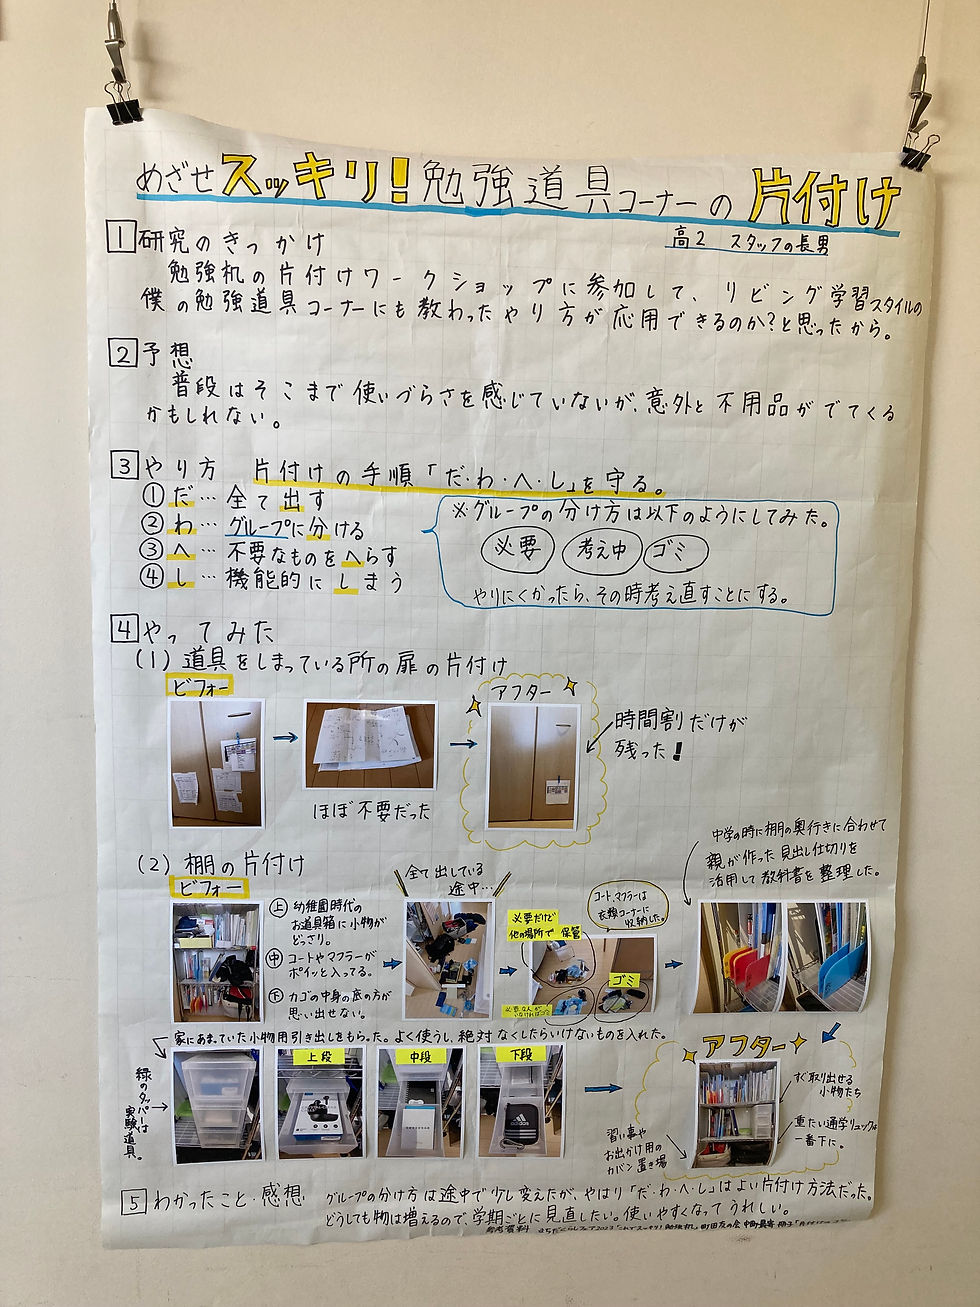 めざせスッキリ!勉強道具コーナーの片付け
高2 スタッフの長男
1 研究のきっかけ
勉強机の片付けワークショップに参加して、リビング学習スタイルの
僕の勉強道具コーナーにも教わったやり方が応用できるのか?と思ったから。
2 予想
普段はそこまで使いづらさを感じていないが、意外と不用品がでてくる
かもしれない。
3 やり方 片付けの手順「だ・わ・へ・し」を守る。
① だ… 全て出す
② わ… グループに分ける
③ へ… 不要なものをへらす
④ し… 機能的にしまう
※グループの分け方は以下のようにしてみた。
必要 考え中 ゴミ
やりにくかったら、その時考え直すことにする。
4 やってみた
(1) 道具をしまっている所の扉の片付け
ビフォー
アフター
ほぼ不要だった
時間割だけが
残った!
(2) 棚の片付け
ビフォー
上 幼稚園時代の
お道具箱に小物が
どっさり。
中 コートやマフラーが
ポイッと入ってる。
下 カゴの中身の底の方が
思い出せない。
全て出している
途中…
必要だけど
他の場所で保管
コート、マフラーは
衣類コーナーに
収納した。
ゴミ
中学の時に棚の奥行きに合わせて
親が作った見出し仕切りを
活用して教科書を整理した。
家にあまっていた小物用引き出しをもらった。よく使うし、絶対なくしたらいけないものを入れた。
緑のタッパーは
実験道具。
上段
中段
下段
adidas
アフター
すぐ取り出せる
小物たち
重たい通学リュックは
一番下に。
習い事や
お出かけ用の
カバン置き場
5 わかったこと・感想
グループの分け方は途中で少し変えたが、やはり「だ・わ・へ・し」はよい片付け方法だった。
どうしても物は増えるので、学期ごとに見直したい。使いやすくなってうれしい。
参考資料